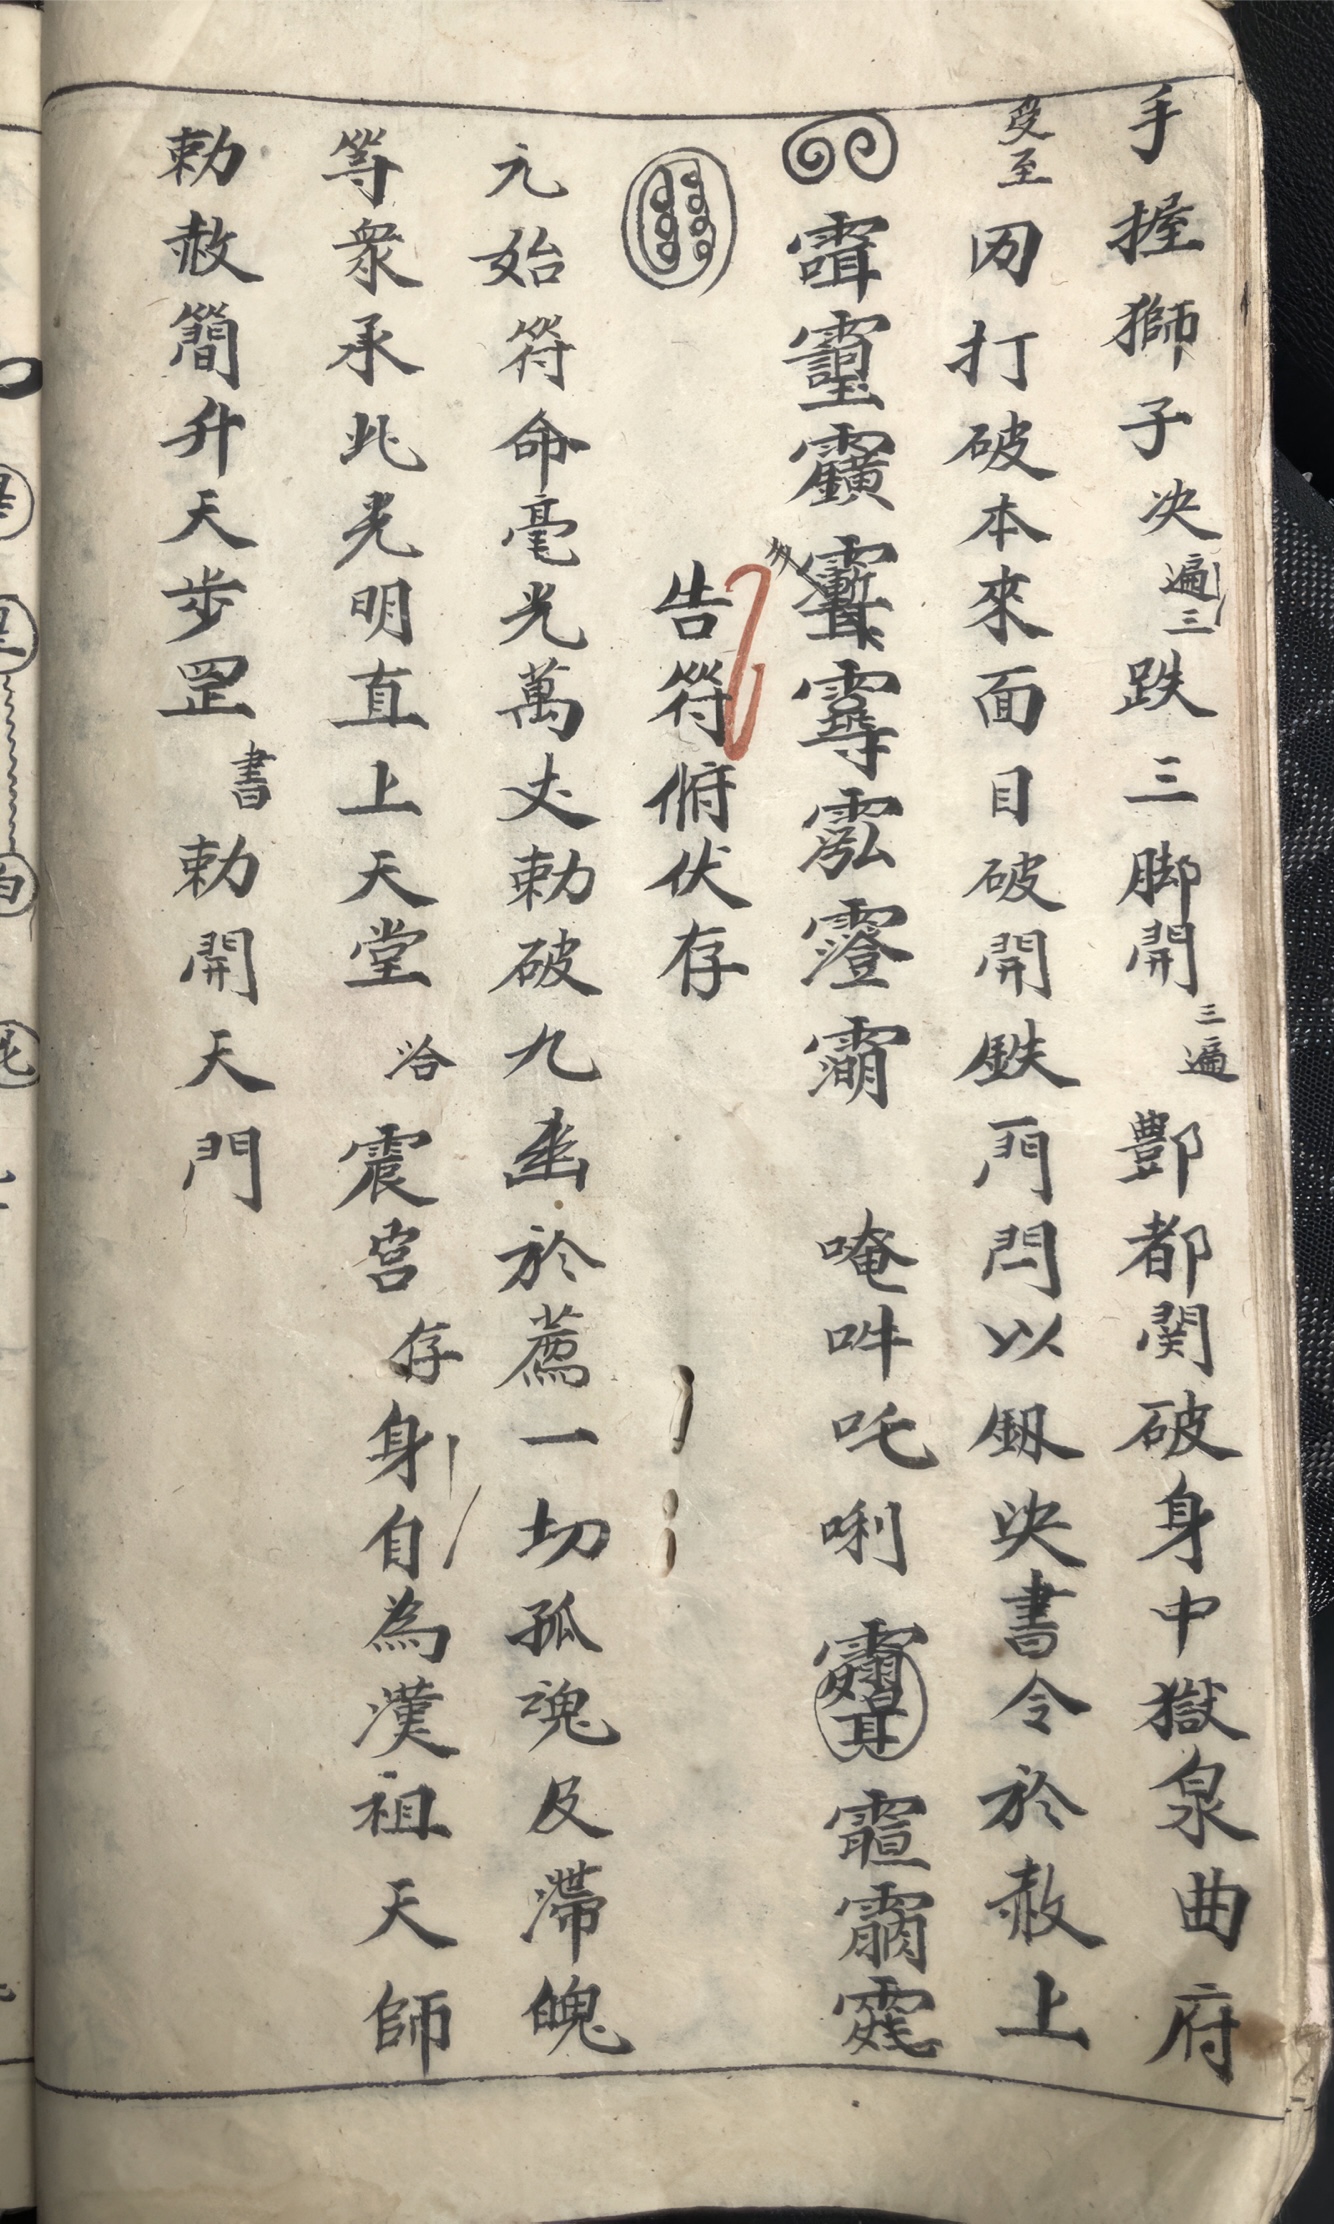 手握獅子决遍三跌三脚開三遍酆都関破身中獄泉曲府
至囦打破本來面目破開鉄門閂以釼决書令於赦上
唵吽吒唎
告符俯伏存
元始符命毫光萬丈勅破九幽於薦一切孤魂及滯魄
等衆承此光明直上天堂洽震宮存身自為漢祖天師
勅赦簡升天步罡書勅開天門